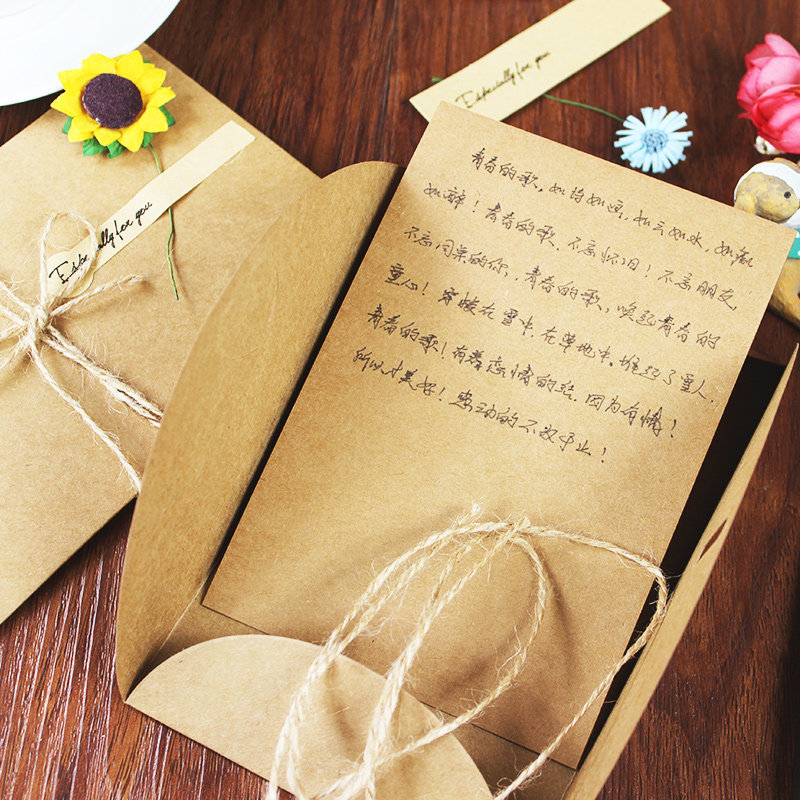 Especially for you
Especially for you
青春的歌,如诗如画,如云如水,如痴
如醉!青春的歌,不忘怀旧!不忘朋友
不忘同桌的你,青春的歌,唤起青春的
童心!穿梭在雪中,在草地中,堆起了雪人,
青春的歌!有着恋情的结,因为有情!
所以才美好!感动的不敢停止!